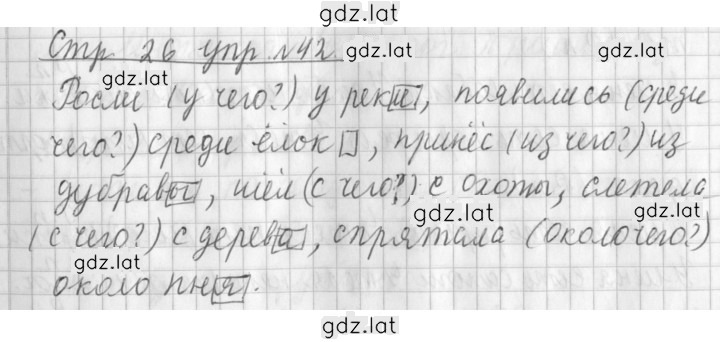 gdz.lat
Стр 26 упр. №42 gdz.lat gdz.lat
gdz.lat
Росли (у чего?) у реки, появились (среди
чего?) среди ёлок, принёс (из чего?) из
дубравы, шёл (с чего?) с охоты, слетела
gdz.lat gdz.lat
(с чего?) с дерева, спрятала (около чего?)
gdz.lat
около пня.
gdz.lat